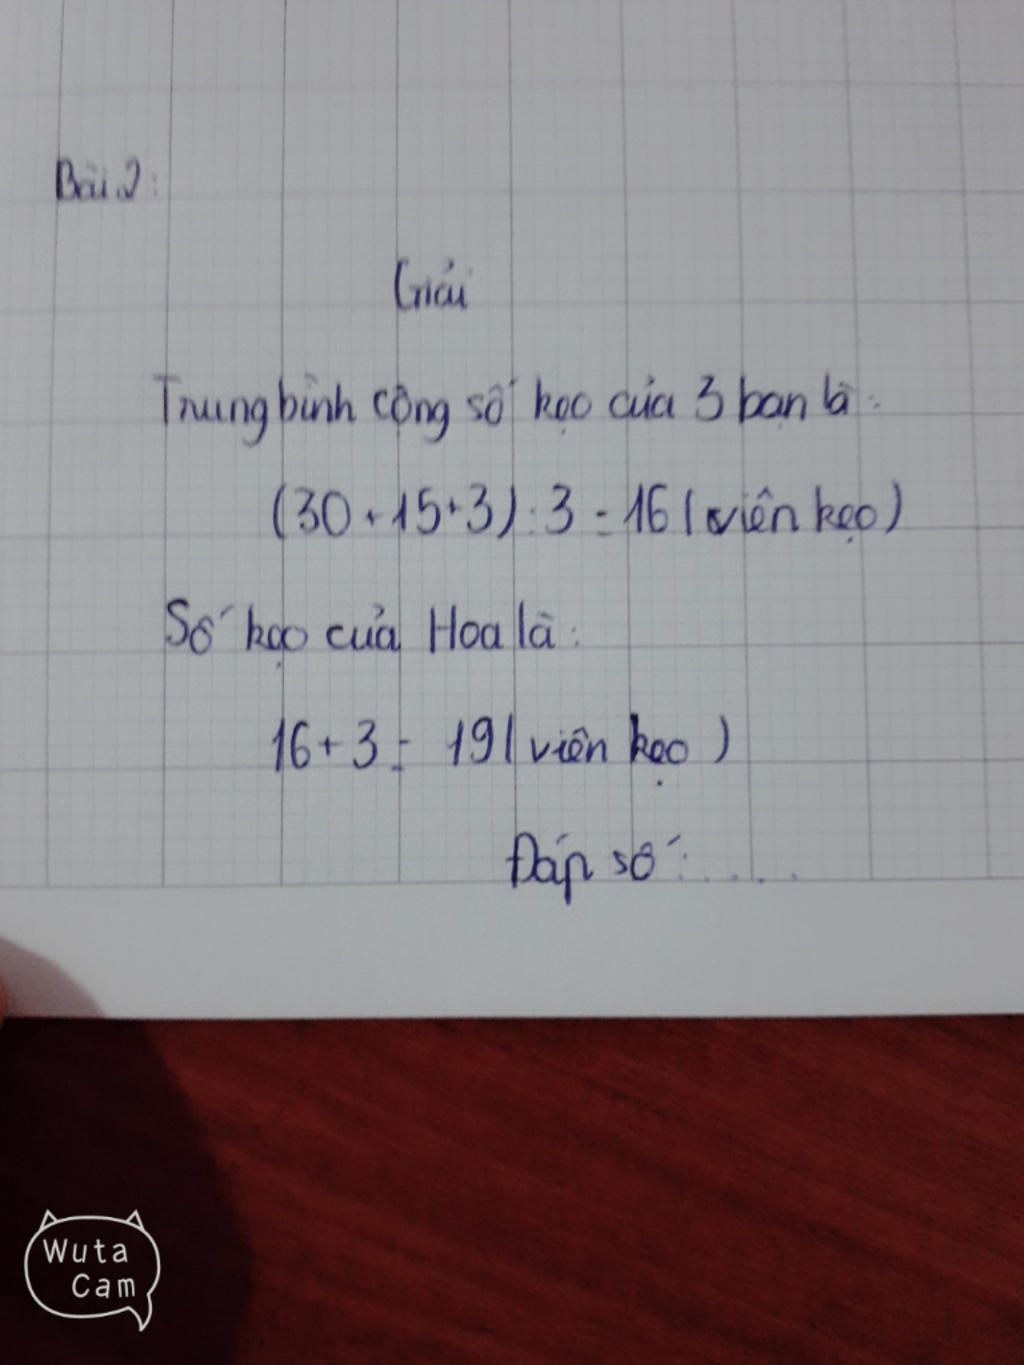 Bài 2:
Giải
Trung bình cộng số kẹo của 3 bạn là:
(30+15+3):3=16 (viên kẹo)
Số kẹo của Hoa là:
16+3= 19 (viên kẹo)
Đáp số:....
Wuta
Cam